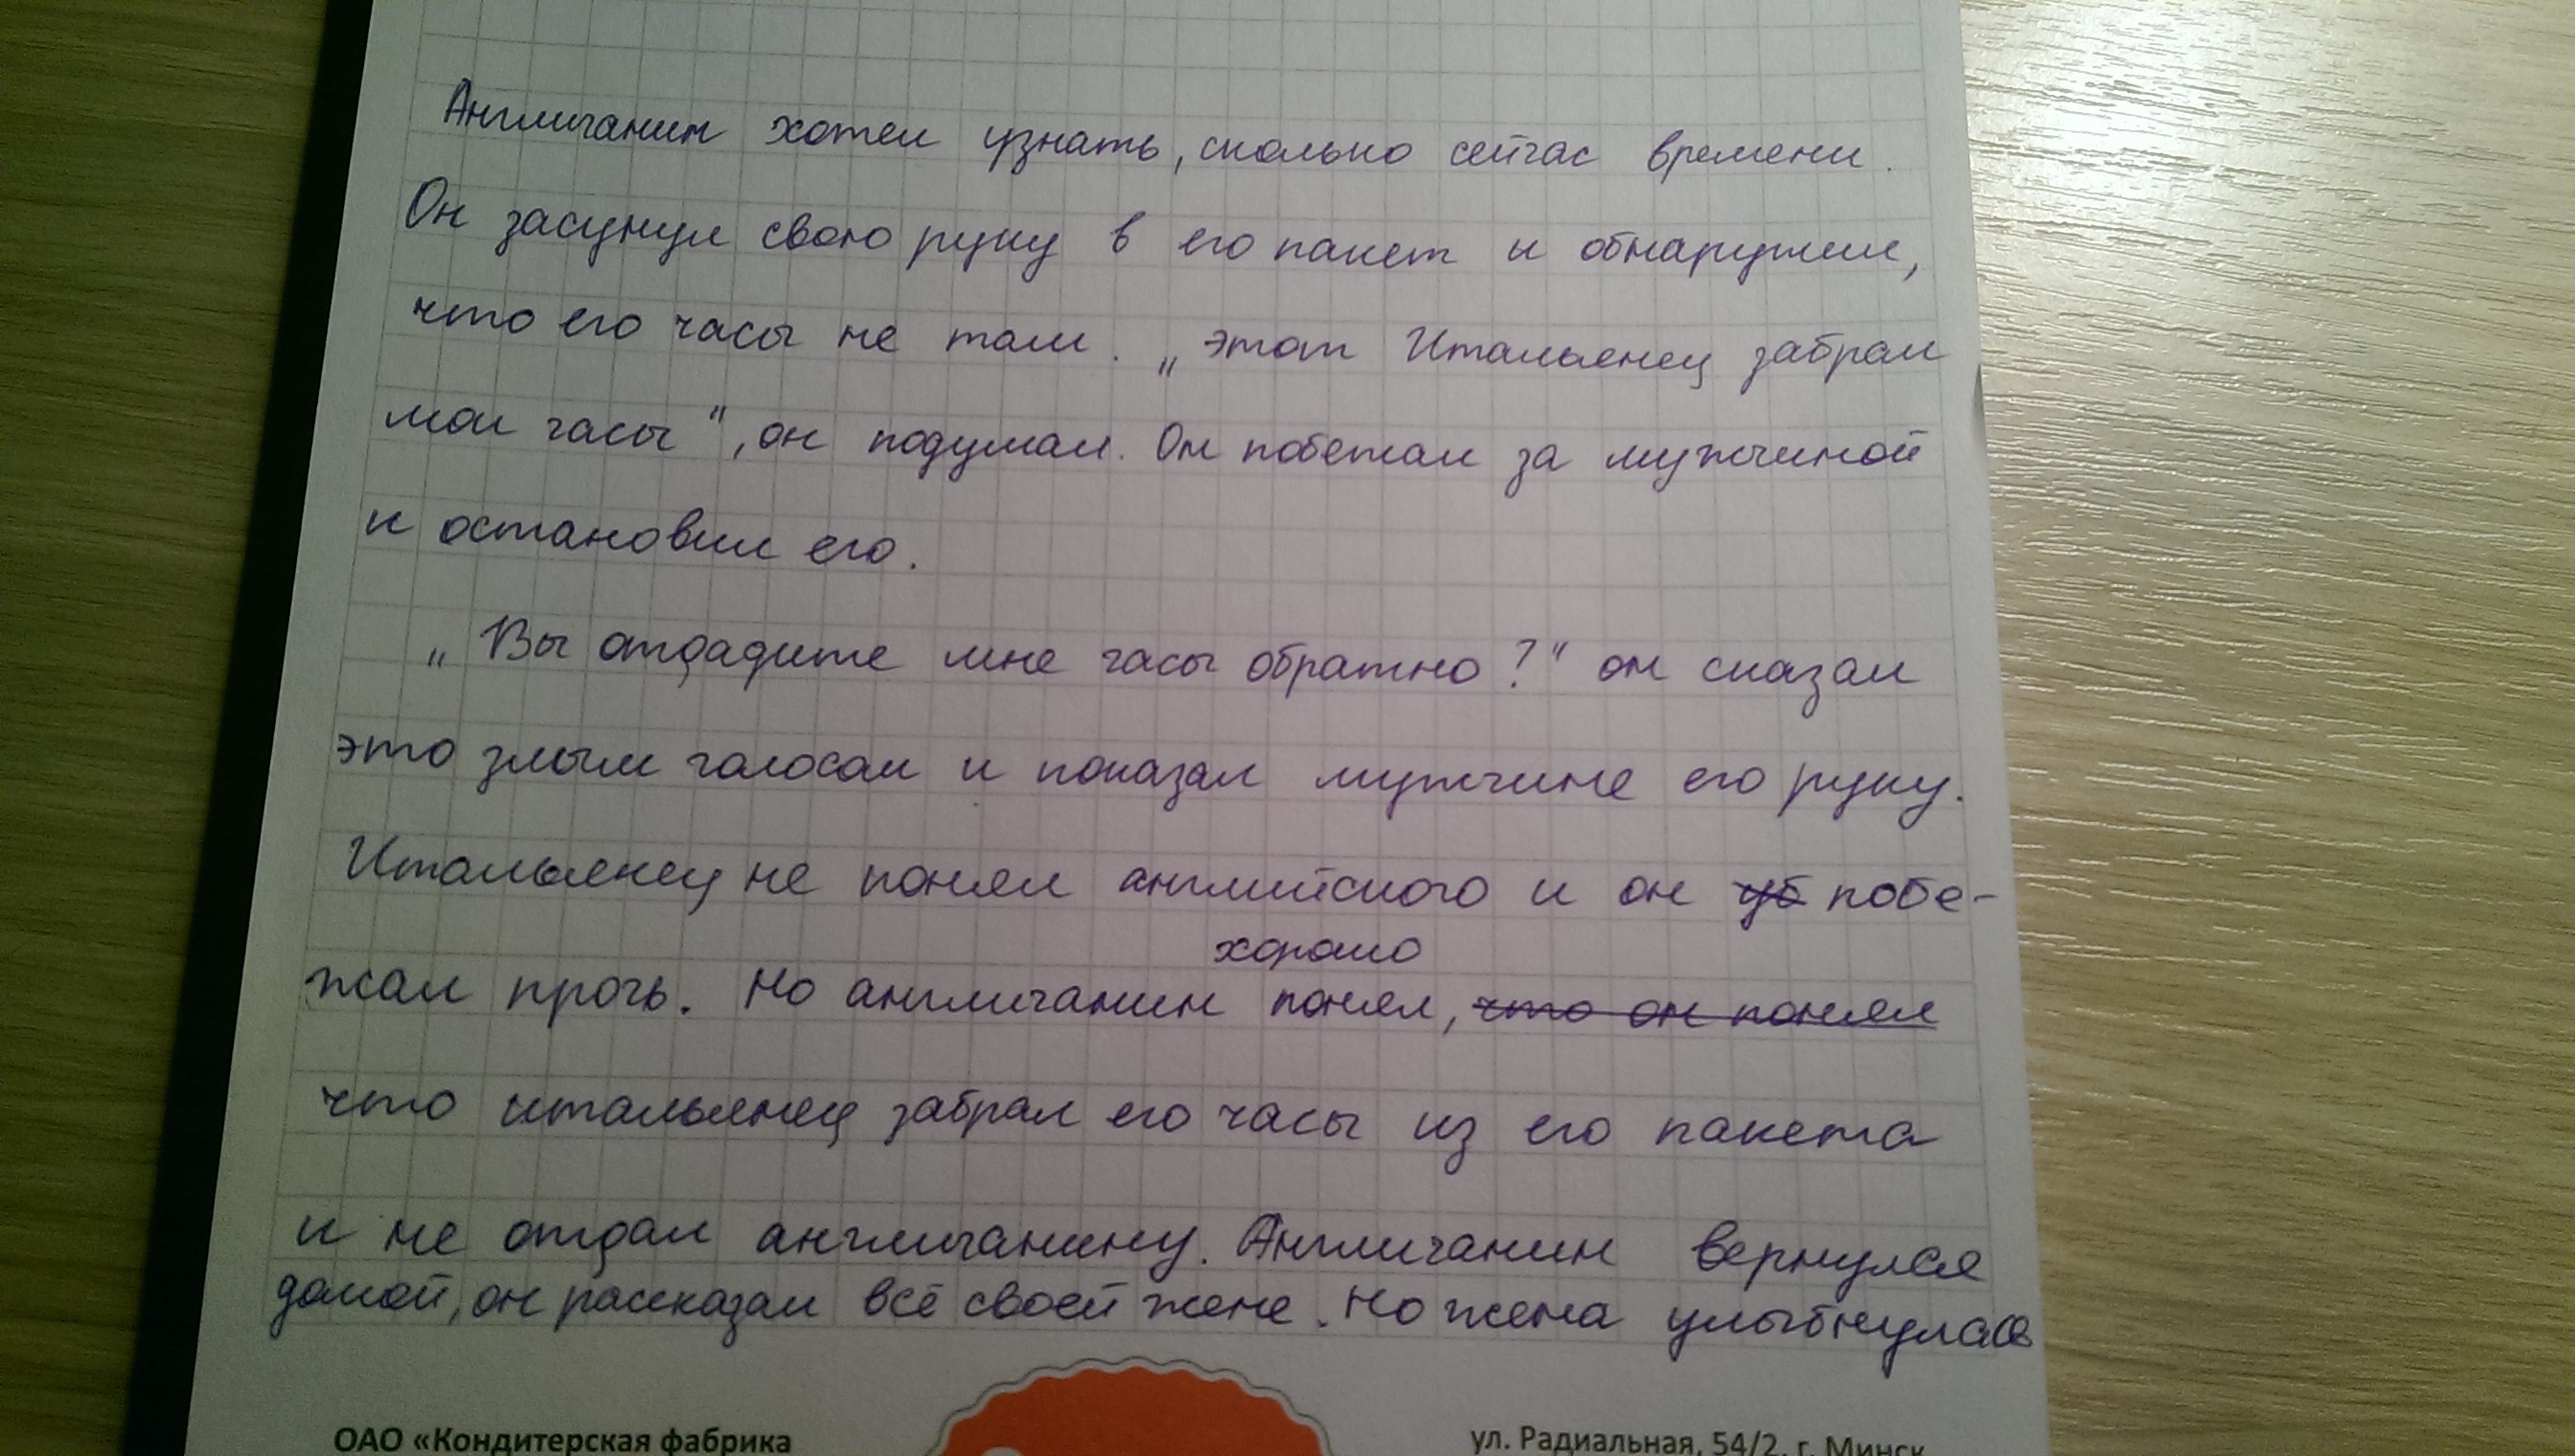 Англичанин хотел узнать, сколько сейчас времени.
Он засунул свою руку в его пакет и обнаружил,
что его часы не там. „этот Итальянец забрал
мои часы“, он подумал. Он побежал за мужчиной
и остановил его.
„Вы отдадите мне часы обратно?“ он сказал
это злым голосом и показал мужчине его руку.
Итальянец не понял английского и он уб побе-
хорошо
жал прочь. Но англичанин понял, что он понял
что итальянец забрал его часы из его пакета
и не отдал англичанину. Англичанин вернулся
домой, он рассказал всё своей жене. Но жена улыбнулась
ОАО «Кондитерская фабрика
ул. Радиальная, 54/2, г. Минск